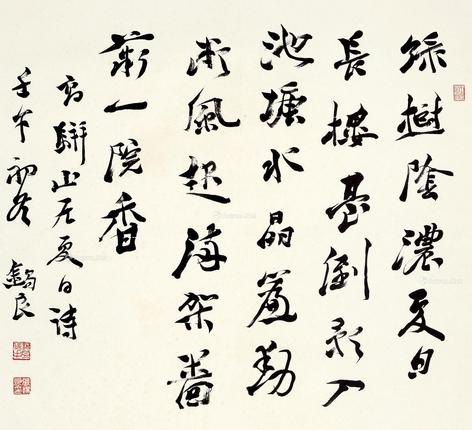 綠樹陰濃夏日
長樓臺倒影入
池塘水晶簾動
微風起滿架薔
薇一院香
高駢山居夏日詩
壬午初冬 良